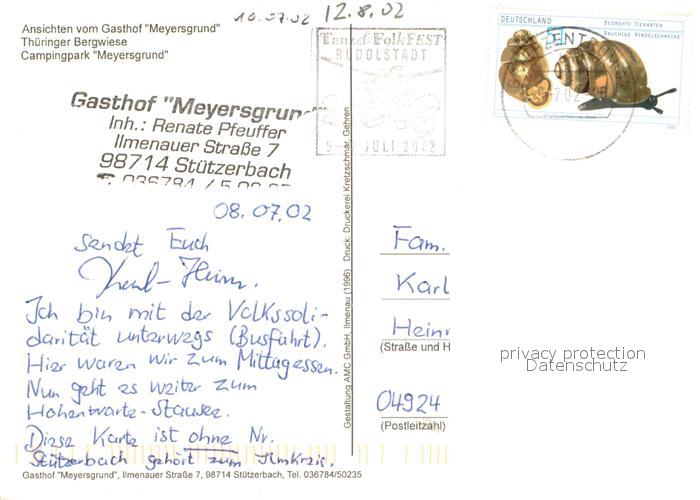 10.07.02 12.8.02
Ansichten vom Gasthof "Meyersgrund"
Thüringer Bergwiese
Campingpark "Meyersgrund"
Tanz&FolkFEST
RUDOLSTADT
JULI 2002
DEUTSCHLAND
BEDROHTE TIERARTEN
BAUCHIGE WINDELSCHNECKE
Gasthof "Meyersgrund"
Inh.: Renate Pfeuffer
Ilmenauer Straße 7
98714 Stützerbach
08.07.02
sendet Euch
Karl-Heinz.
Ich bin mit der Volkssoli-
darität unterwegs (Busfahrt).
Hier waren wir zum Mittagessen.
Nun geht es weiter zum
Hohenwarte-Stausee.
Diese Karte ist ohne Nr.
Stützerbach gehört zum Ilmkreis.
Gasthof "Meyersgrund", Ilmenauer Straße 7, 98714 Stützerbach, Tel. 036784/50235
Gestaltung AMC GmbH, Ilmenau (1996) Druck: Druckerei Kretzschmar, Gehren
Fam.
Karl
Heinr
(Straße und H
04924
(Postleitzahl)
privacy protection
Datenschutz